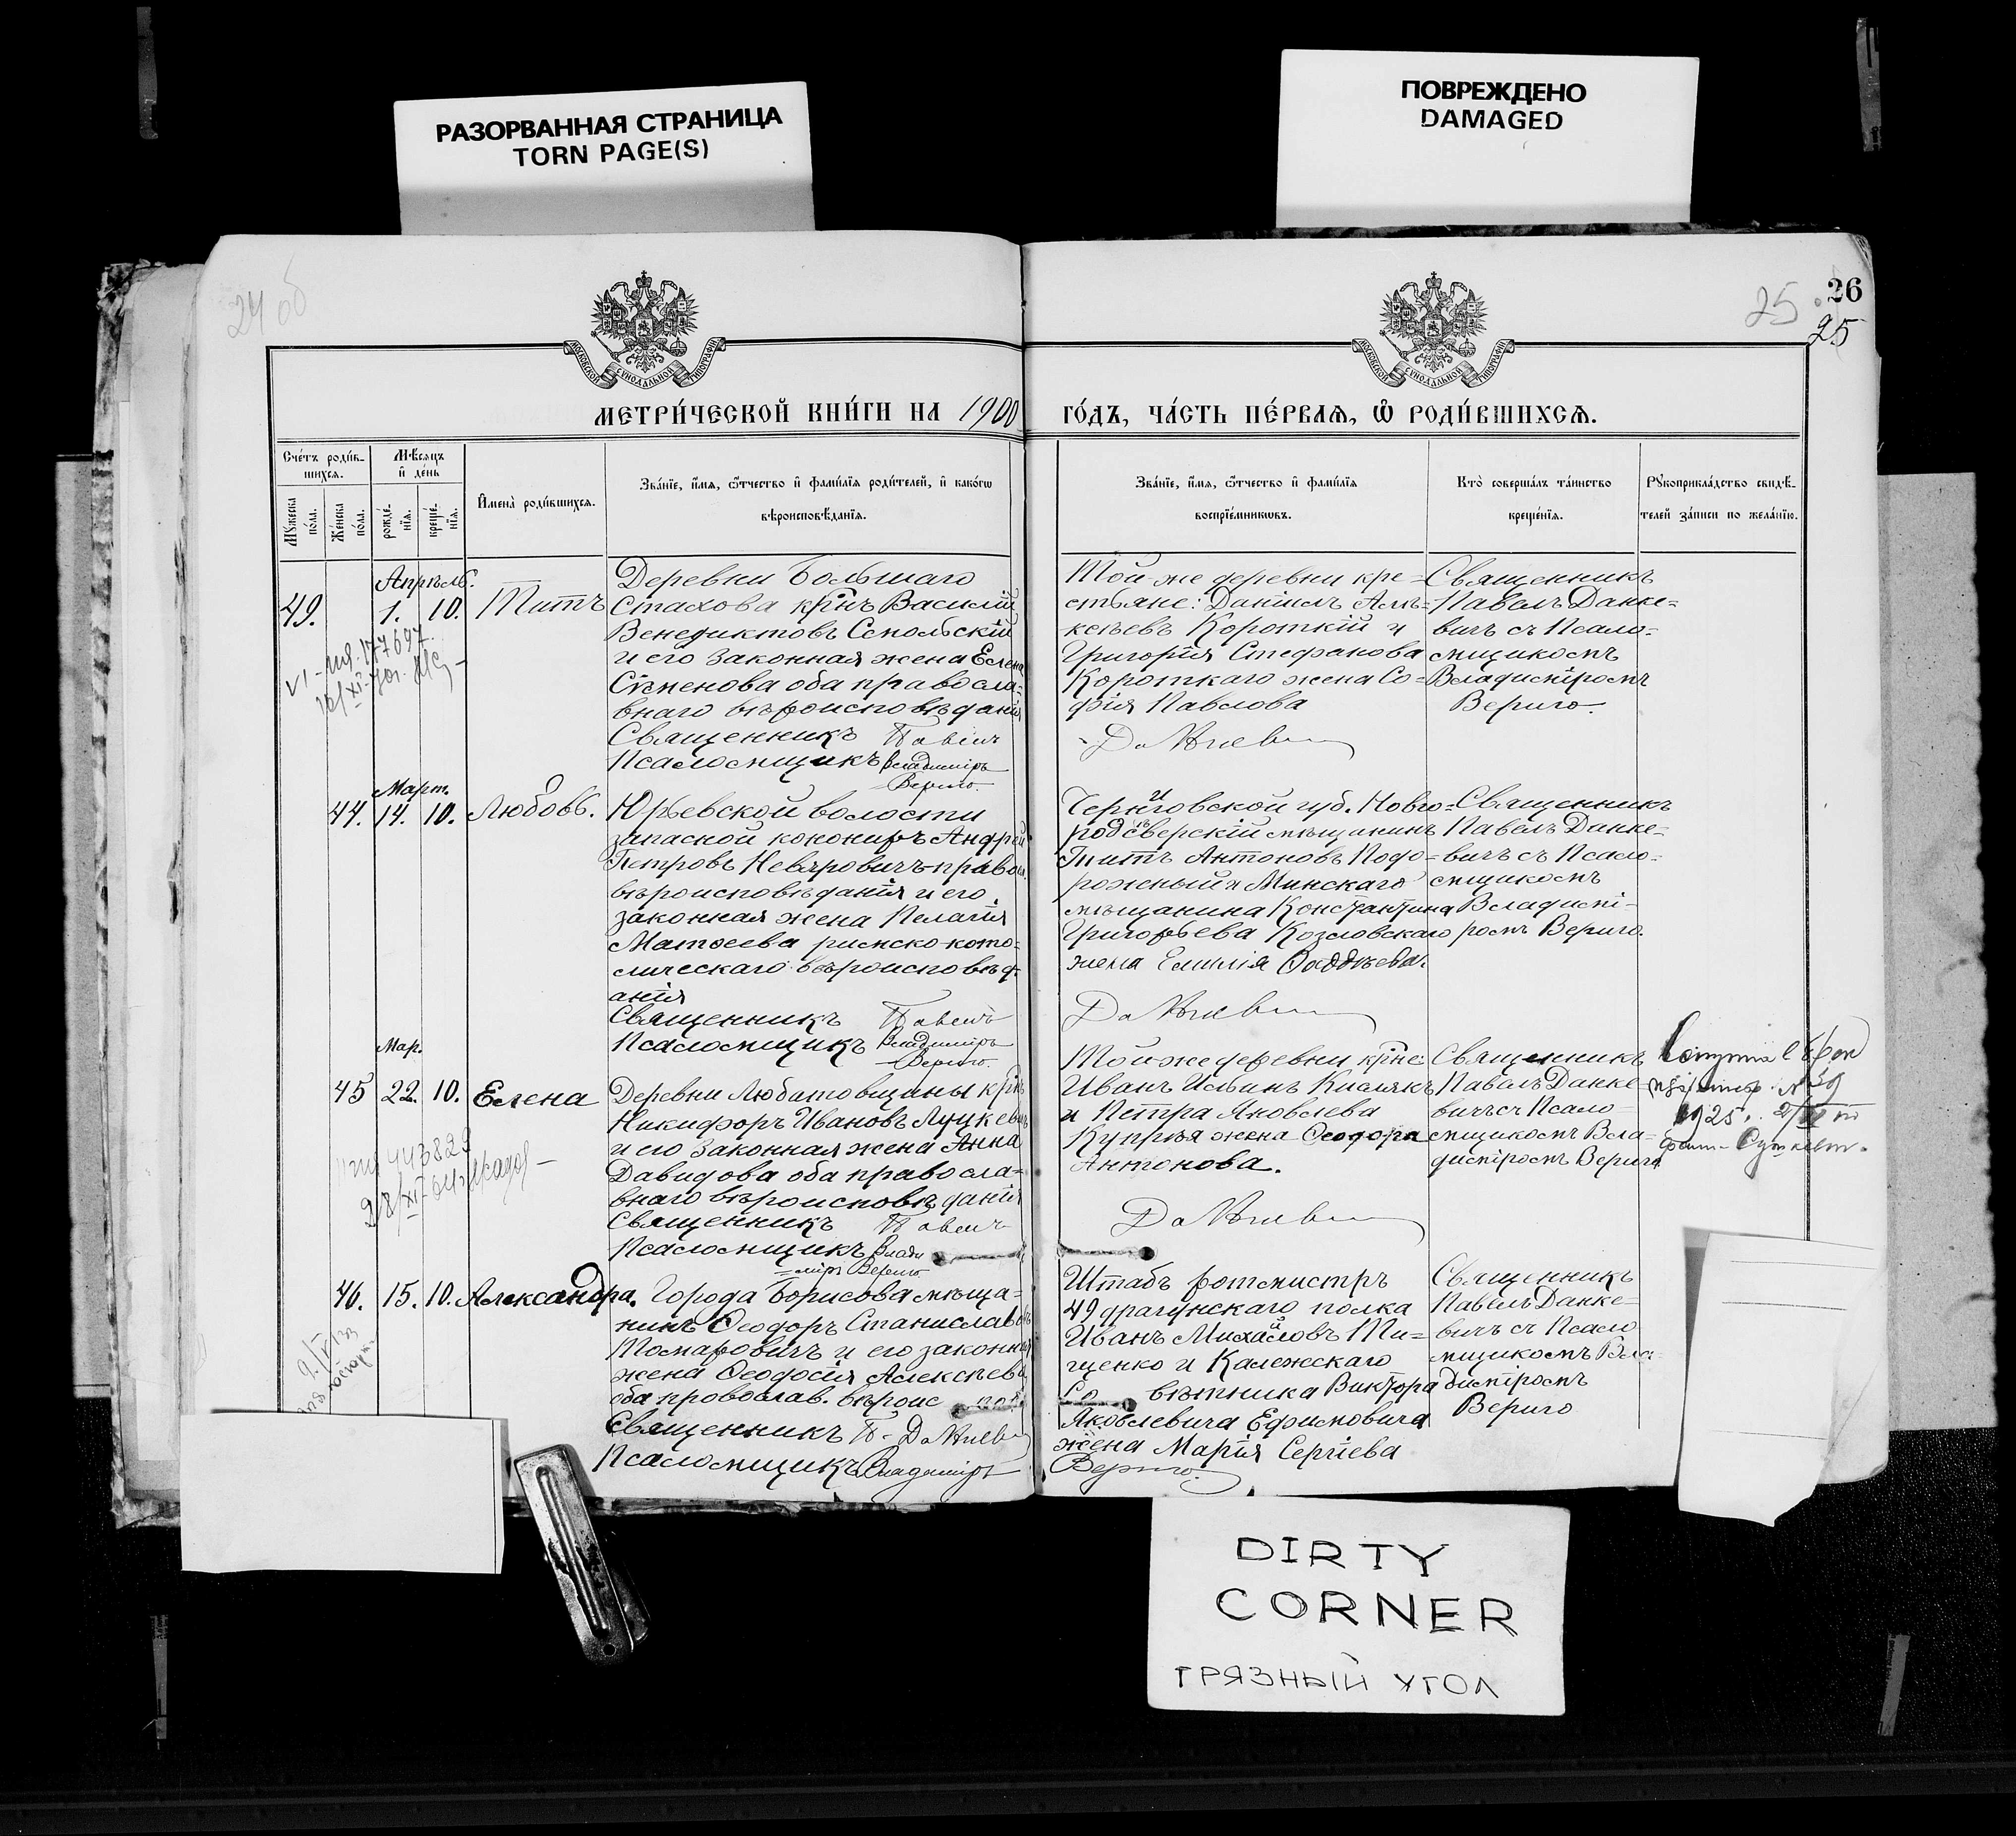 РАЗОРВАННАЯ СТРАНИЦА
TORN PAGE(S)
ПОВРЕЖДЕНО
DAMAGED
24 об
25
26
25
МОСКОВСКОЙ СУНОДАЛЬНОЙ ТИПОГРАФІИ
МОСКОВСКОЙ СУНОДАЛЬНОЙ ТИПОГРАФІИ
МЕТРИ́ЧЕСКОЙ КНИ́ГИ НА 1900
ГО́ДЪ, ЧА́СТЬ ПЕ́РВАѦ, Ѡ РОДИ́ВШИХСѦ.
Сче́тъ роди́в-
шихсѧ.
Мѣ́сѧцъ
и де́нь
Мꙋжеска по́ла.
Же́нска по́ла.
рожде́-
нїѧ.
креще́-
нїѧ.
Имена̀ роди́вшихсѧ.
Зва́нїе, и́мѧ, ѻ́тчество и фами́лїѧ роди́телей, и како́гѡ
вѣроисповѣ́данїѧ.
Зва́нїе, и́мѧ, ѻ́тчество и фами́лїѧ
воспрїе́мникѡвъ.
Кто̀ соверша́лъ та́инство
креще́нїѧ.
Рꙋкоприкла́дство свидѣ́-
телей за́писи по жела́нїю.
Апрѣль.
49.
1.
10.
Титъ
Деревни Большаго
Стахова крнъ Василій
Венедиктовъ Сспольскій
и его законная жена Елена
Сѵменова оба правосла-
внаго вѣроисповѣданія
Священникъ Павелъ
Псаломщикъ Владиміръ
Вериго.
Той же деревни кре-
стьяне: Даніилъ Але-
ксѣевъ Короткій и
Григорія Стефанова
Короткаго жена Со-
фія Павлова
Данкевич
Священникъ
Павелъ Данке-
вичъ съ Псало-
мщикомъ
Владиміромъ
Вериго.
Март.
44.
14.
10.
Любовь.
Юрьевской волости
запасной канониръ Андрей
Петровъ Невяровичъ правос.
вѣроисповѣданія и его
законная жена Пелагія
Матѳеева римско-като-
лическаго вѣроисповѣд-
анія
Священникъ Павелъ
Псаломщикъ Владиміръ
Вериго.
Черниговской губ. Новго-
родсѣверскій мѣщанинъ
Титъ Антоновъ Подо-
рожный и Минскаго
мѣщанина Константина
Григорьева Козловскаго
жена Емилія Ѳаддѣева.
Данкевич
Священникъ
Павелъ Данке-
вичъ съ Псало-
мщикомъ
Владимі-
ромъ Вериго.
Мар.
45
22.
10.
Елена
Деревни Любатовщины крнъ
Никифоръ Ивановъ Луцкевичъ
и его законная жена Анна
Давидова оба правосла-
внаго вѣроисповѣданія
Священникъ Павелъ
Псаломщикъ Влади
міръ Вериго
Той же деревни крне:
Иванъ Ильинъ Кислякъ
и Петра Яковлева
Купрѣя жена Ѳеодора
Антонова.
Данкевич
Священникъ
Павелъ Данке
вичъ съ Псало-
мщикомъ Вла-
диміромъ Вериго
1925
46.
15.
10.
Александра.
Города Борисова мѣща-
нинъ Ѳеодоръ Станиславовъ
Томаровичъ и его законная
жена Ѳеодосія Алексѣева
оба провослав. вѣроис пов
Священникъ П. Данкевич
Псаломщикъ Владиміръ
Штабъ ротмистръ
49 драгунскаго полка
Иванъ Михайловъ Ти-
щенко и Калежскаго
Со вѣтника Виктора
Яковлевича Ефимовича
жена Марія Сергіева
Вериго.
Священникъ
Павелъ Данке-
вичъ съ Псало
мщикомъ Вла-
диміромъ
Вериго
DIRTY
CORNER
ГРЯЗНЫЙ УГОЛ